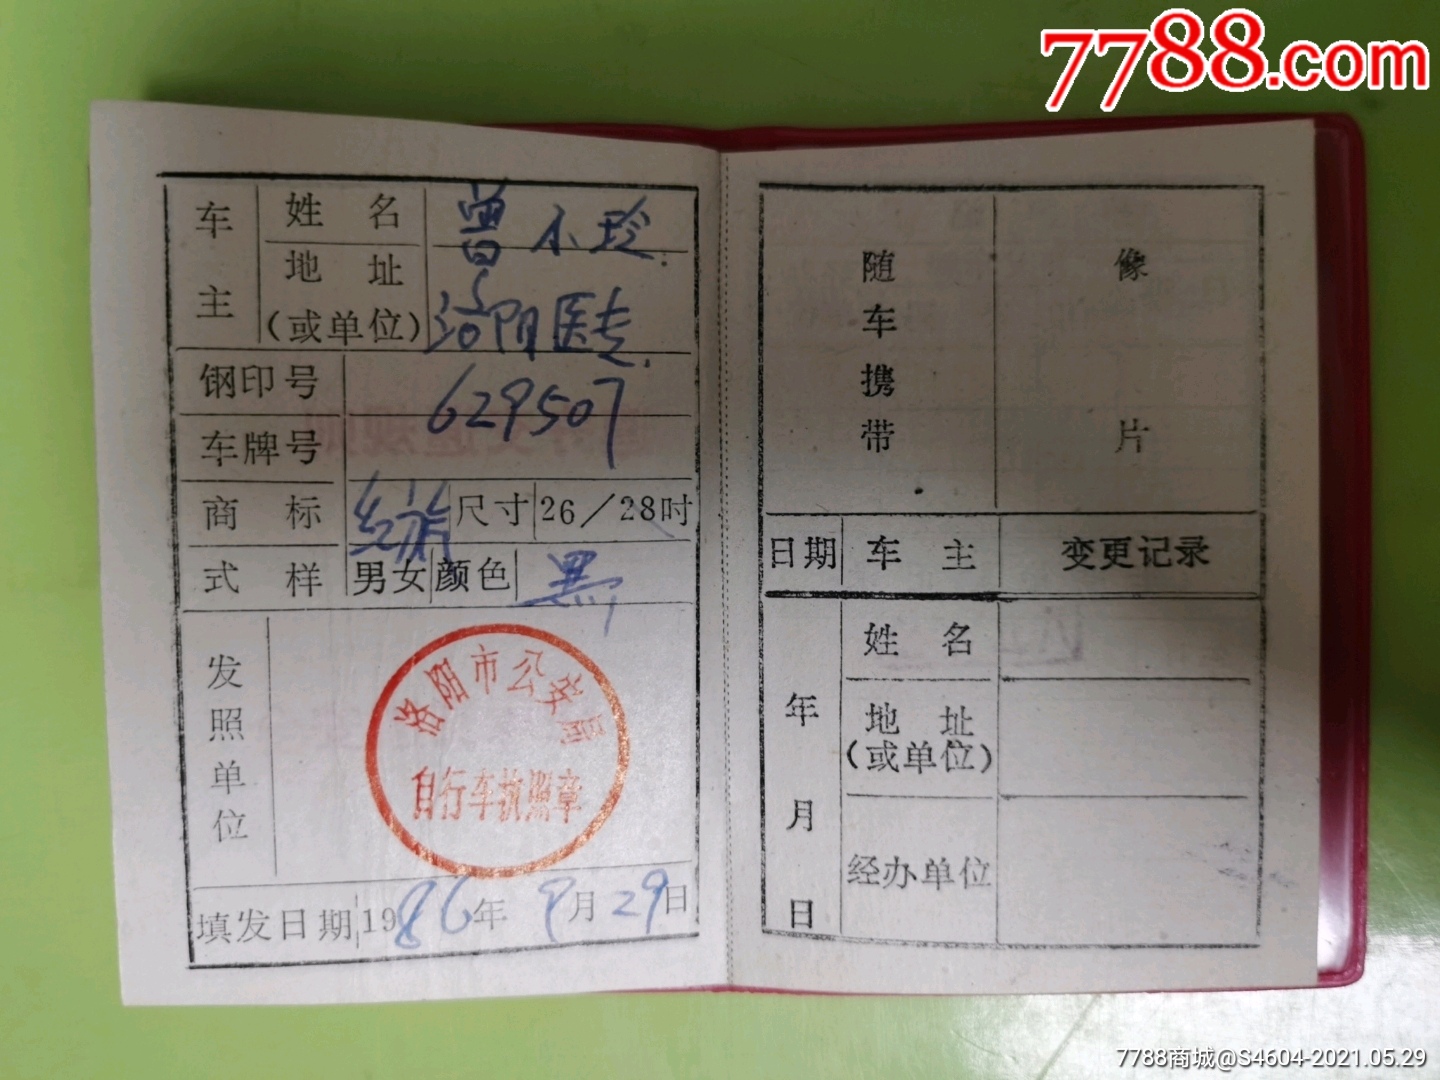 7788.com
车主
姓 名 曾小玲
地 址
(或单位) 洛阳医专
钢印号 629507
车牌号
商 标 红旗 尺寸 26／28吋
式 样 男女 颜色 黑
发照单位
洛阳市公安局
自行车执照章
填发日期 1986年9月29日
随车携带
像片
日期 车 主 变更记录
年 月 日
姓 名
地 址
(或单位)
经办单位
7788商城@S4604-2021.05.29